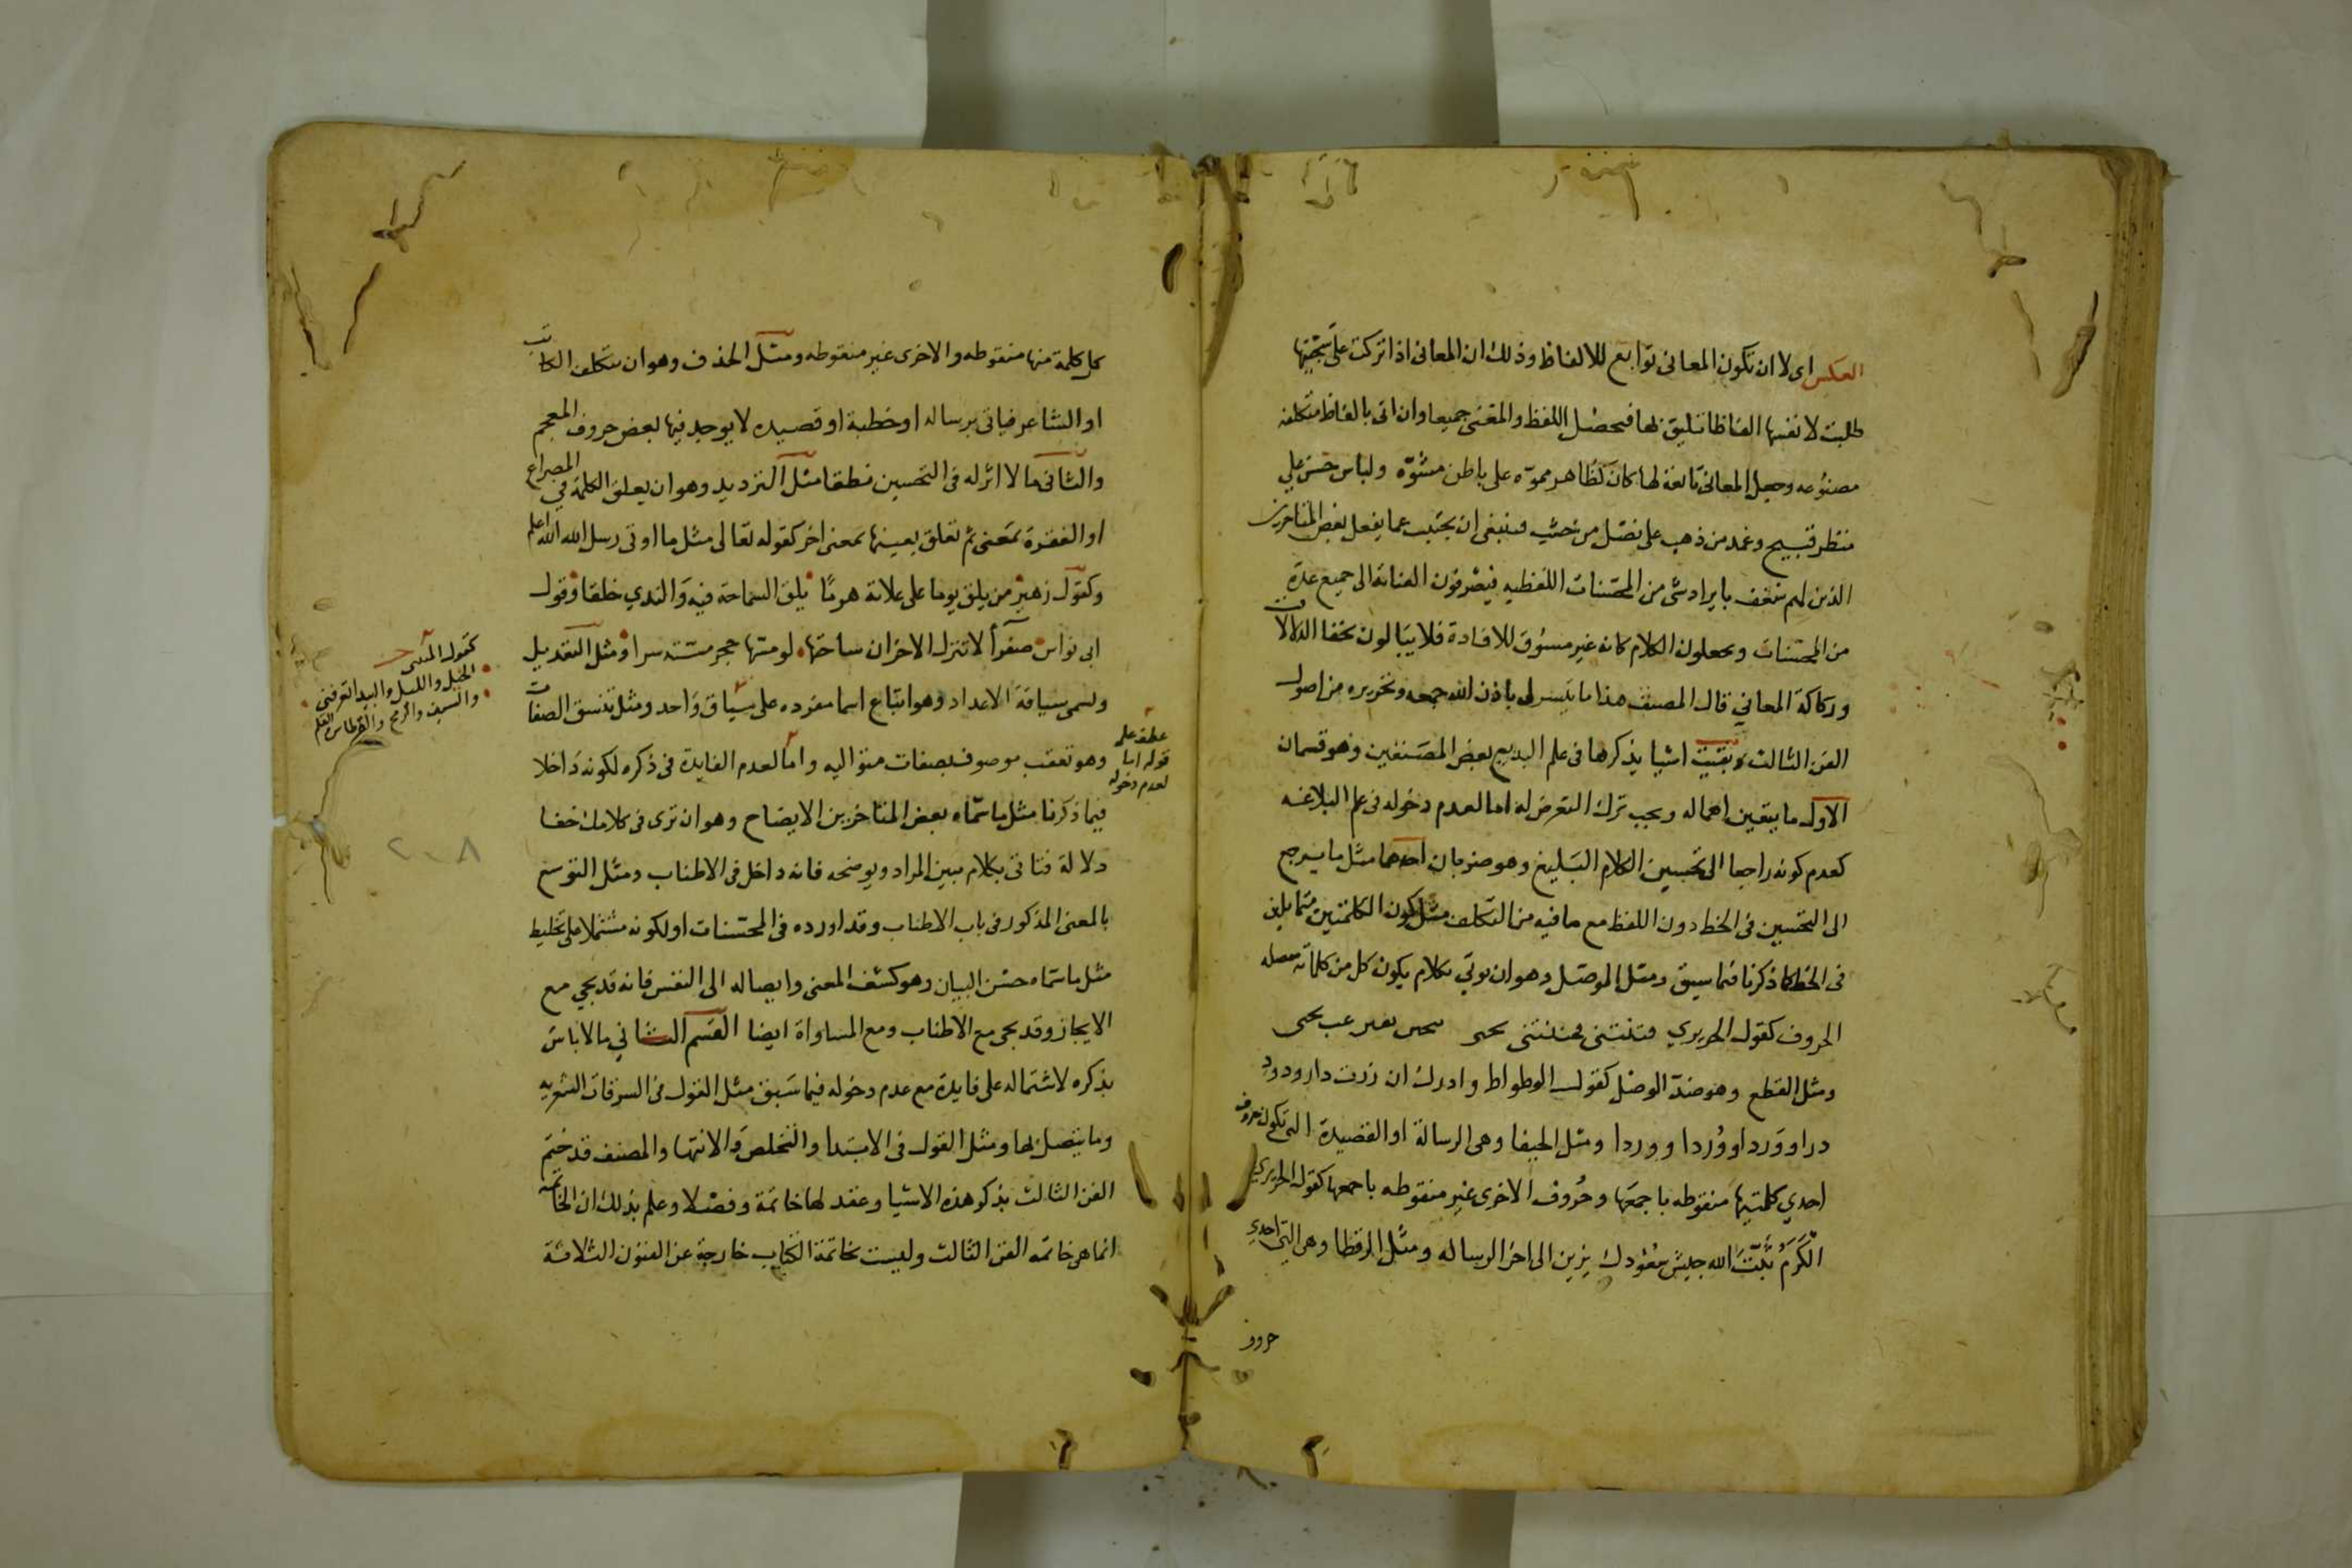 العكس اى لا ان تكون المعانى توابع للالفاظ وذلك ان المعانى اذا تركت على سجيتها
طلبت لانفسها الفاظا تليق بها فيحصل اللفظ والمعنى جميعا وان اتى بالفاظ متكلفه
مصنوعه وجعل المعانى تابعة لها كان كظاهر مموّه على باطن مشوّه ولباس حسن على
منظر قبيح وغمد من ذهب على نصل من خشب فينبغى ان يجتنب عما يفعل بعض المتاخرين
الذين لهم شغف بايراد شى من المحسنات اللفظيه فيصرفون العناية الى جميع عدّة
من المحسنات ويجعلون الكلام كانه غير مسوق للافادة فلا يبالون بخفا الدلالات
وركاكة المعاني قال المصنف هذا ما تيسر لى باذن الله جمعه وتحريره من اصول
الفن الثالث وبقيت اشيا يذكرها فى علم البديع بعض المصنفين وهو قسمان
الاول ما يتعين اهماله ويجب ترك التعرض له اما لعدم دخوله فى علم البلاغه
كعدم كونه راجعا الى تحسين الكلام البليغ وهو ضربان احدهما مثل ما يرجع
الى التحسين فى الخط دون اللفظ مع ما فيه من التكلف مثل كون الكلمتين متماثلين
فى الخط كما ذكرنا فيما سبق ومثل الموصل وهو ان يوتي بكلام يكون كل من كلماته متصله
الحروف كقول الحريري فتنتنى فجننتنى تجنى بتجن يفتن غب تجنى
ومثل القطع وهو ضدّ الوصل كقول الوطواط وادرك ان زرت دار ودود
درا ووَردا ووُردا ووردا ومثل الخيفا وهى الرسالة او القصيدة التى تكون حروف
احدي كلمتيها منقوطه باجمعها وحُروف الاخرى غير منقوطه باجمعها كقول الحريري
الكَرَمُ ثَبَّتَ الله جيش سُعُودك يزين الى اخر الرساله ومثل الرقطا وهى التى احدى
حروف
كل كلمة منها منقوطه والاخرى غير منقوطه ومثل الحذف وهو ان يتكلف الكاتب
او الشاعر فياتى برساله او خطبة او قصيده لا يوجد فيها بعض حروف المعجم
والثانى ما لا اثر له فى التحسين قطعا مثل الترديد وهو ان يعلق الكلمة فى المصراع
او الفقرة بمعنى ثم تعلق بعينها بمعنى اخر كقوله تعالى مثل ما اوتى رسل الله الله اعلم
وكقول زهير من يلق يوما على علاته هرمًا يلق السماحة فيه والندي خلقا وقول
ابى نواس صفرأ لا تنزل الاحزان ساحتها لو مسّها حجر مسّته سرا ومثل التعديل
ويسمى سياقة الاعداد وهو ايقاع اسما مفرده على سياق واحد ومثل تنسق الصفات
وهو تعقب موصوف بصفات متواليه واما لعدم الفايدة فى ذكره لكونه داخلا
فيما ذكرنا مثل ما سماه بعض المتاخرين الايضاح وهو ان ترى فى كلامك خفا
دلالة فتاتى بكلام يبين المراد ويوضحه فانه داخل فى الاطناب ومثل التوسع
بالمعنى المذكور فى باب الاطناب وقد اورده فى المحسنات او لكونه مشتملا على تخليط
مثل ما سماه حسن البيان وهو كشف المعنى وايصاله الى النفس فانه قد يجي مع
الايجاز وقد يجى مع الاطناب ومع المساواة ايضا القسم الثاني ما لا باس
بذكره لاشتماله على فايدة مع عدم دخوله فيما سبق مثل القول فى السرقات الشعريه
وما يتصل بها ومثل القول فى الابتدا والتخلص والانتها والمصنف قد ختم
الفن الثالث بذكر هذه الاشيا وعقد لها خاتمة وفصلا وعلم بذلك ان الخاتمه
انما هى خاتمة الفن الثالث وليست بخاتمة الكتاب خارجة عن الفنون الثلاثة
عطف على
قوله اما
لعدم دخوله
كقول المتنبى
الخيل والليل والبيدا تعرفنى
والسيف والرمح والقرطاس والقلم
٢٠٨